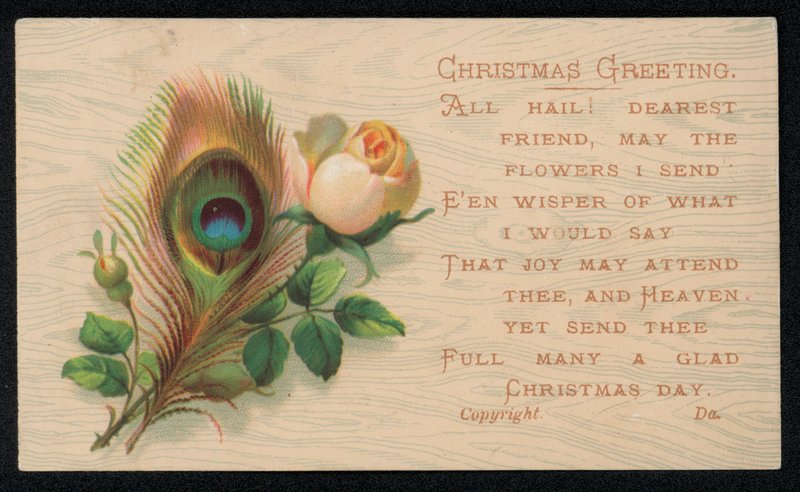 CHRISTMAS GREETING.
ALL HAIL! DEAREST
FRIEND, MAY THE
FLOWERS I SEND
E'EN WISPER OF WHAT
I WOULD SAY
THAT JOY MAY ATTEND
THEE, AND HEAVEN
YET SEND THEE
FULL MANY A GLAD
CHRISTMAS DAY.
Copyright. Da.